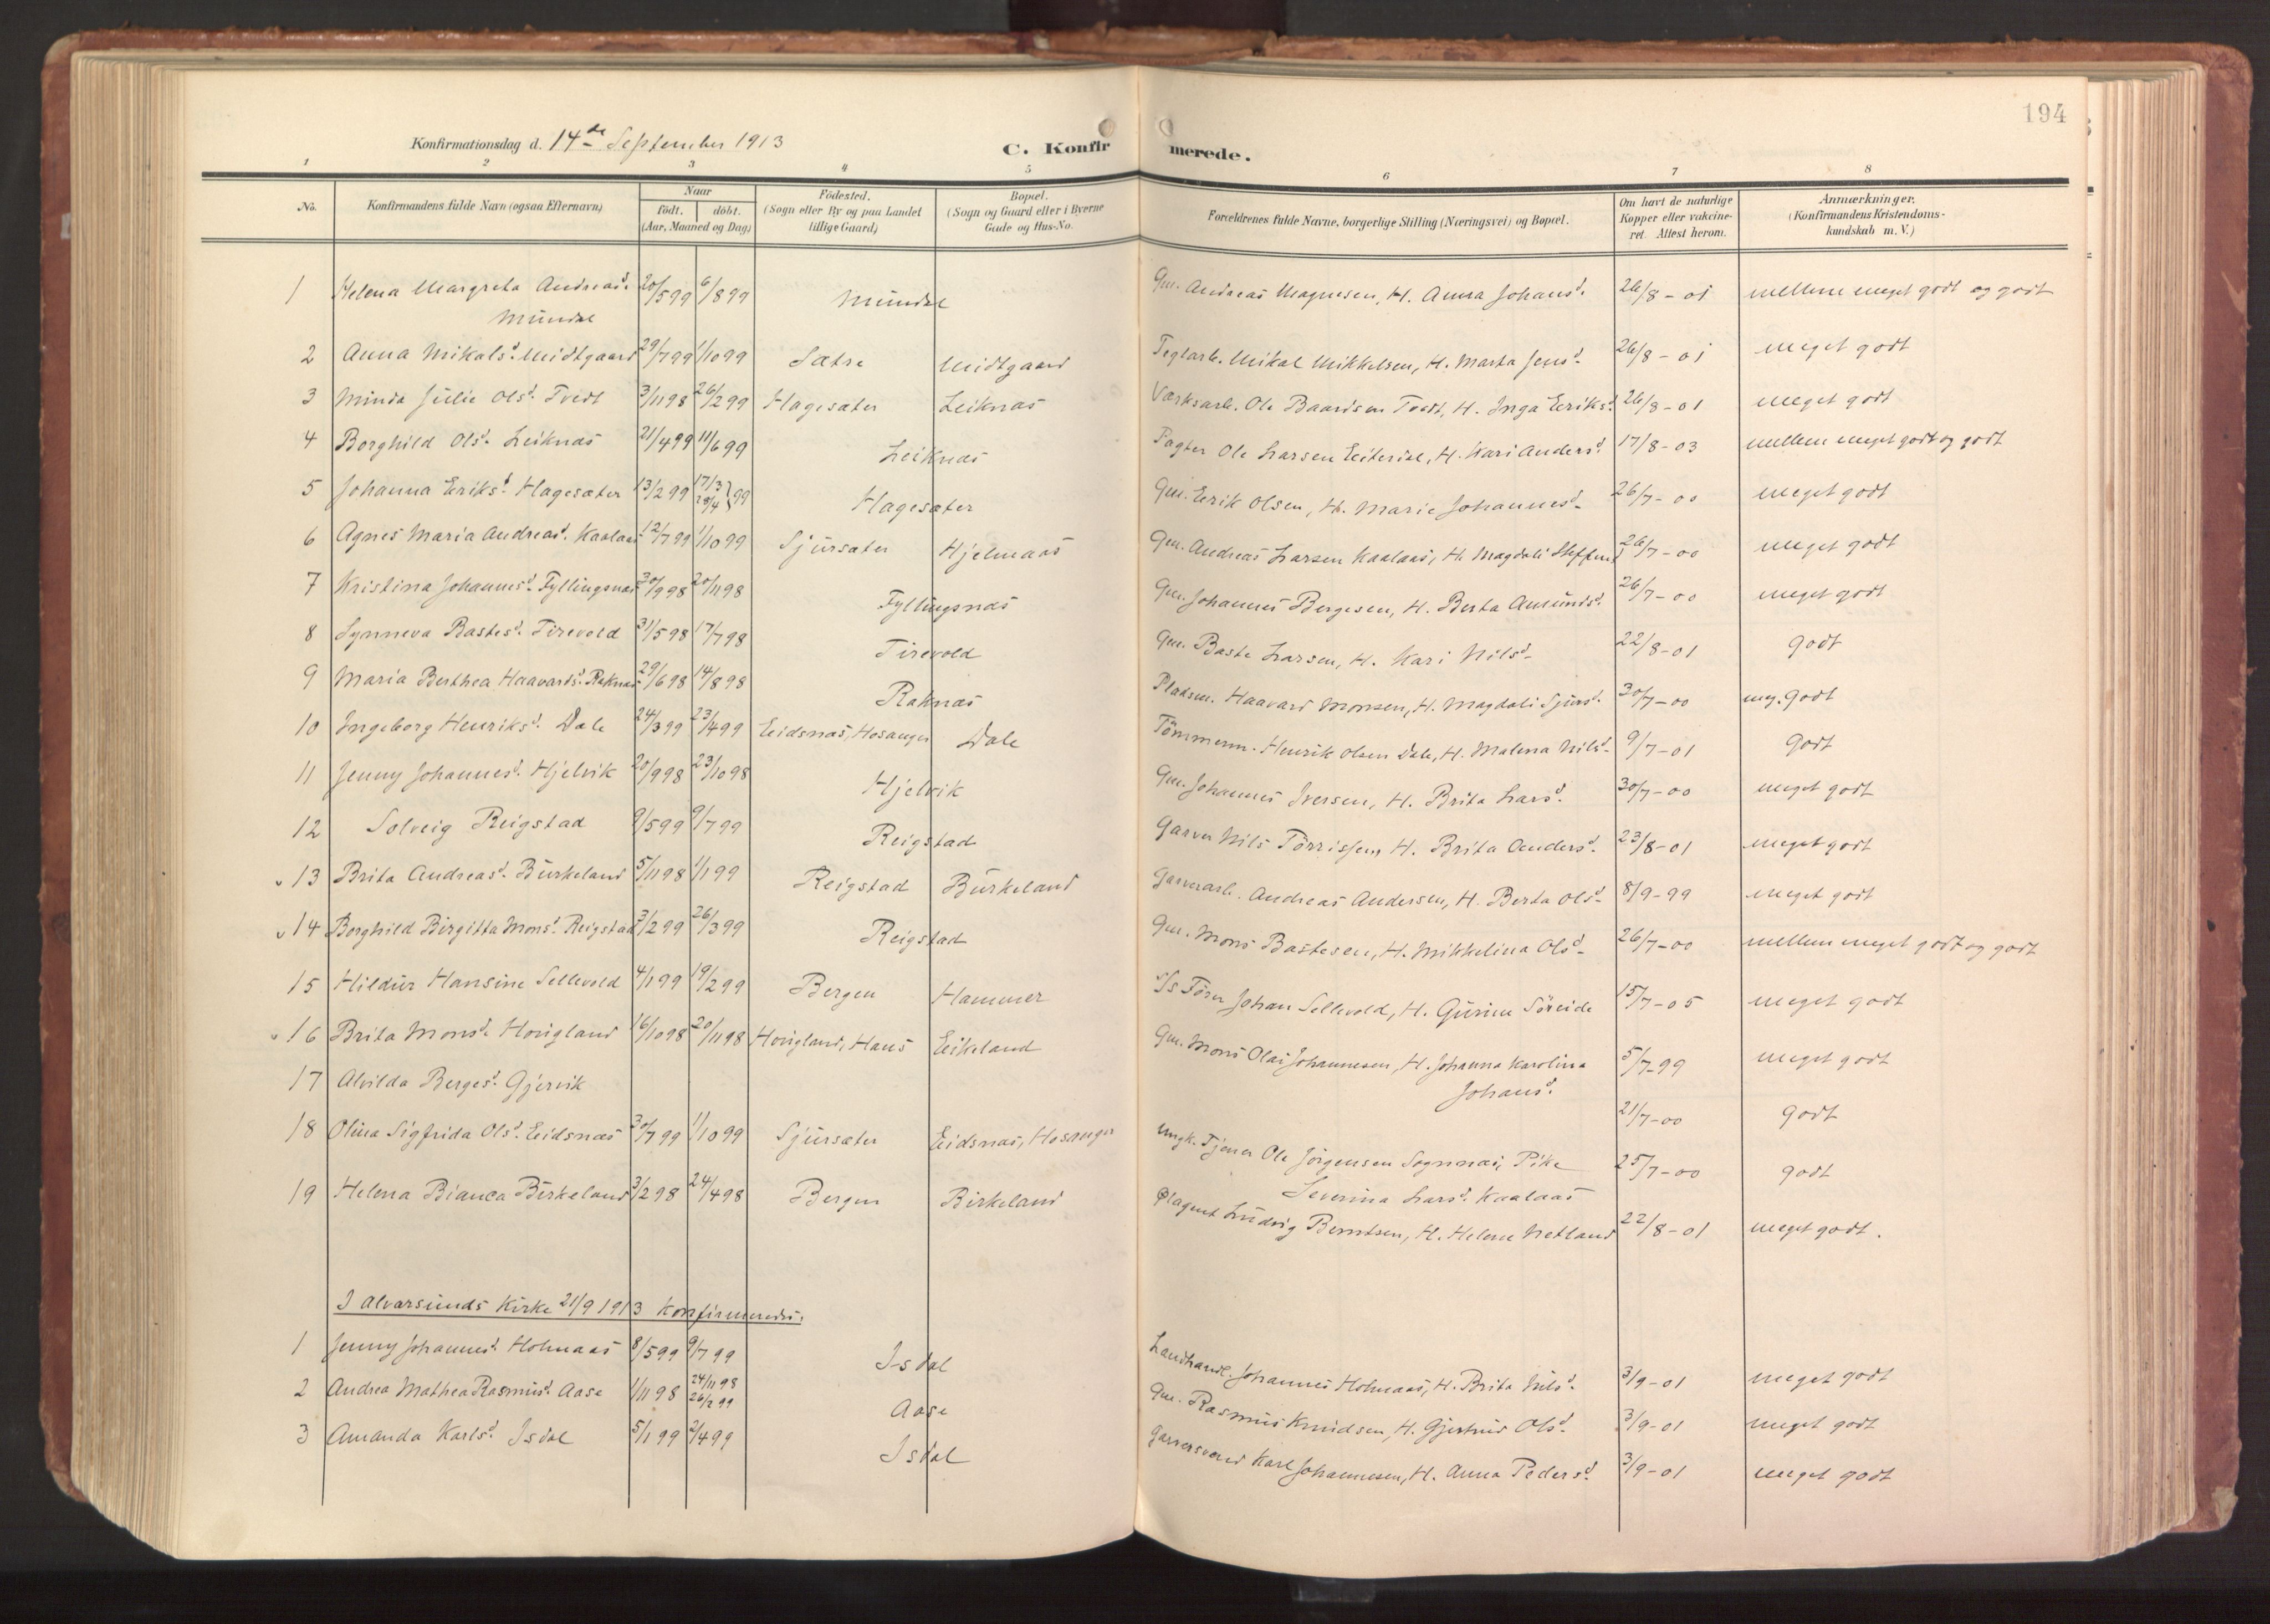 194
Konfirmationsdag d. 14de September 1913
C. Konfirmerede.
1 2 3 4 5 6 7 8
No. Konfirmandens fulde Navn (ogsaa Efternavn) Naar födt. döbt. (Aar, Maaned og Dag) Födested. (Sogn eller By og paa Landet tillige Gaard) Bopæl. (Sogn og Gaard eller i Byerne Gade og Hus-No. Forældrenes fulde Navne, borgerlige Stilling (Næringsvei) og Bopæl. Om havt de naturlige Kopper eller vakcineret. Attest herom. Anmærkninger. (Konfirmandens Kristendomskundskab m. V.)
1 Helena Margreta Andreasd. Mundal 20/5 99 6/8 99 Mundal Gm. Andreas Magnesen, H. Anna Johansd. 26/8-01 mellem meget godt og godt
2 Anna Mikalsd. Midtgaard 29/7 99 1/10 99 Sætre Midtgaard Teglarb. Mikal Mikkelsen, H. Marta Jensd. 26/8-01 meget godt
3 Minda Julie Olsd. Tvedt 3/11 98 26/2 99 Hagesæter Leiknæs Værksarb. Ole Baardsen Tvedt, H. Inga Eeriksd. 26/8-01 meget godt
4 Borghild Olsd. Leiknæs 21/4 99 11/6 99 Leiknæs Pagter Ole Larsen Eiterdal, H. Kari Andersd. 17/8-03 mellem meget godt og godt
5 Johanna Eeriksd. Hagesæter 13/2 99 17/3 28/4 } 99 Hagesæter Gm. Eerik Olsen, H. Marie Johannesd. 26/7-00 meget godt
6 Agnes Maria Andreasd. Kaalaas 12/7 99 1/10 99 Sjursæter Hjelmaas Gm. Andreas Larsen Kaalaas, H. Magdali Steffensd. 26/7-00 meget godt
7 Kristina Johannesd. Fyllingsnæs 30/9 98 20/11 98 Fyllingsnæs Gm. Johannes Bergesen, H. Berta Amundsd. 26/7-00 meget godt
8 Synneva Bastesd. Tirevold 31/5 98 17/7 98 Tirevold Gm. Baste Larsen, H. Kari Nilsd. 22/8-01 godt
9 Maria Berthea Haavardsd. Raknæs 29/6 98 14/8 98 Raknæs Pladsm. Haavard Monsen, H. Magdali Sjursd. 30/7-00 meg. godt
10 Ingeborg Henriksd. Dale 24/3 99 23/4 99 Eidsnæs, Hosanger Dale Tömmerm. Henrik Olsen Dale, H. Malena Nilsd. 9/7-01 godt
11 Jenny Johannesd. Hjelvik 20/9 98 23/10 98 Hjelvik Gm. Johannes Iversen, H. Brita Larsd. 30/7-00 meget godt
12 Solveig Reigstad 9/5 99 9/7 99 Reigstad Garver Nils Törrissen, H. Brita Andersd. 23/8-01 meget godt
13 Brita Andreasd. Burkeland 5/11 98 1/1 99 Reigstad Burkeland Garverarb. Andreas Andersen, H. Berta Olsd. 8/9-99 meget godt
14 Borghild Birgitta Monsd. Reigstad 3/2 99 26/3 99 Reigstad Gm. Mons Bastesen, H. Mikkelina Olsd. 26/7-00 mellem meget godt og godt
15 Hildur Hansine Sellevold 4/1 99 19/2 99 Bergen Hammer S/s Förer Johan Sellevold, H. Gurine Söreide 15/7-05 meget godt
16 Brita Monsd. Hougland 16/10 98 20/11 98 Hougland, Haus Eikeland Gm. Mons Olai Johannesen, H. Johanna Karolina Johansd. 5/7-99 meget godt
17 Alvilda Bergesd. Gjervik 21/7-00 godt
18 Olina Sigfrida Olsd. Eidsnæs 30/7 99 1/10 99 Sjursæter Eidsnæs, Hosanger Ungk. Tjener Ole Jörgensen Sognnæs, Pike Severina Larsd. Kaalaas 25/7-00 godt
19 Helena Bianca Birkeland 3/2 98 24/4 98 Bergen Birkeland Ludvig Berntsen, H. Helene Natland 22/8-01 meget godt.
I Alversunds Kirke 21/9 1913 konfirmeredes.
1 Jenny Johannesd. Holmaas 8/5 99 9/7 99 Isdal Landhandl. Johannes Holmaas, H. Brita Nilsd. 3/9-01 meget godt
2 Andrea Mathea Rasmusd. Aase 1/11 98 24/11 98 26/2 99 Aase Gm. Rasmus Knudsen, H. Gjertrud Olsd. 3/9-01 meget godt
3 Amanda Karlsd. Isdal 5/1 99 2/4 99 Isdal Garversvend Karl Johannesen, H. Anna Pedersd. 3/9-01 meget godt